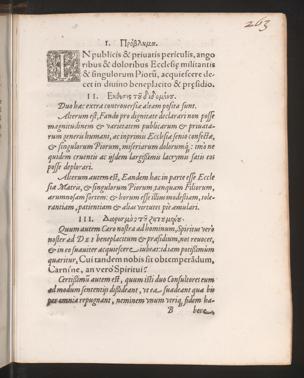 263
I. Πρόβλημα.
IN publicis & priuatis periculis, ango
ribus & doloribus Ecclesiæ militantis
& singulorum Piorũ, acquiescere de-
cet in diuino beneplacito & præsidio.
II. Εκθεσις τοῦ
Duo hæc extra controuersiæ aleam posita sunt.
Alterum est, Eandẽ pro dignitate declarari non posse
magnitudinem & varietatem publicarum & priuata-
rum generis humani, ac inprimis Ecclesiæ senio confectæ,
& singulorum Piorum, miseriarum dolorumq́;: imò ne
quidem cruentis ac ijsdem largissimis lacrymis satis eos
posse deplorari.
Alterum autem est, Eandem hac in parte esse Eccle
siæ Matris, & singulorum Piorum tanquam Filiorum,
ærumnosam sortem: & horum esse illius modestiam, tole-
rantiam, patientiam & alias virtutes piè æmulari.
III. Διορισμὸς τοῦ ζητουμένου.
Quum autem Caro nostra ad hominum, Spiritus verò
noster ad DEI beneplacitum & præsidium, nos reuocet,
& in eo suauiter acquiescere iubeat: idcirco potissimùm
quæritur, Cui tandem nobis sit obtemperãdum,
Carni ne, an verò Spiritui?
Certissimũ autem est, quum isti duo Consultores eum
ad modum sententijs dissideant, vt ea suadeant quæ sibi
per omnia repugnant, neminem vnum vtriq; fidem ha-
B bere